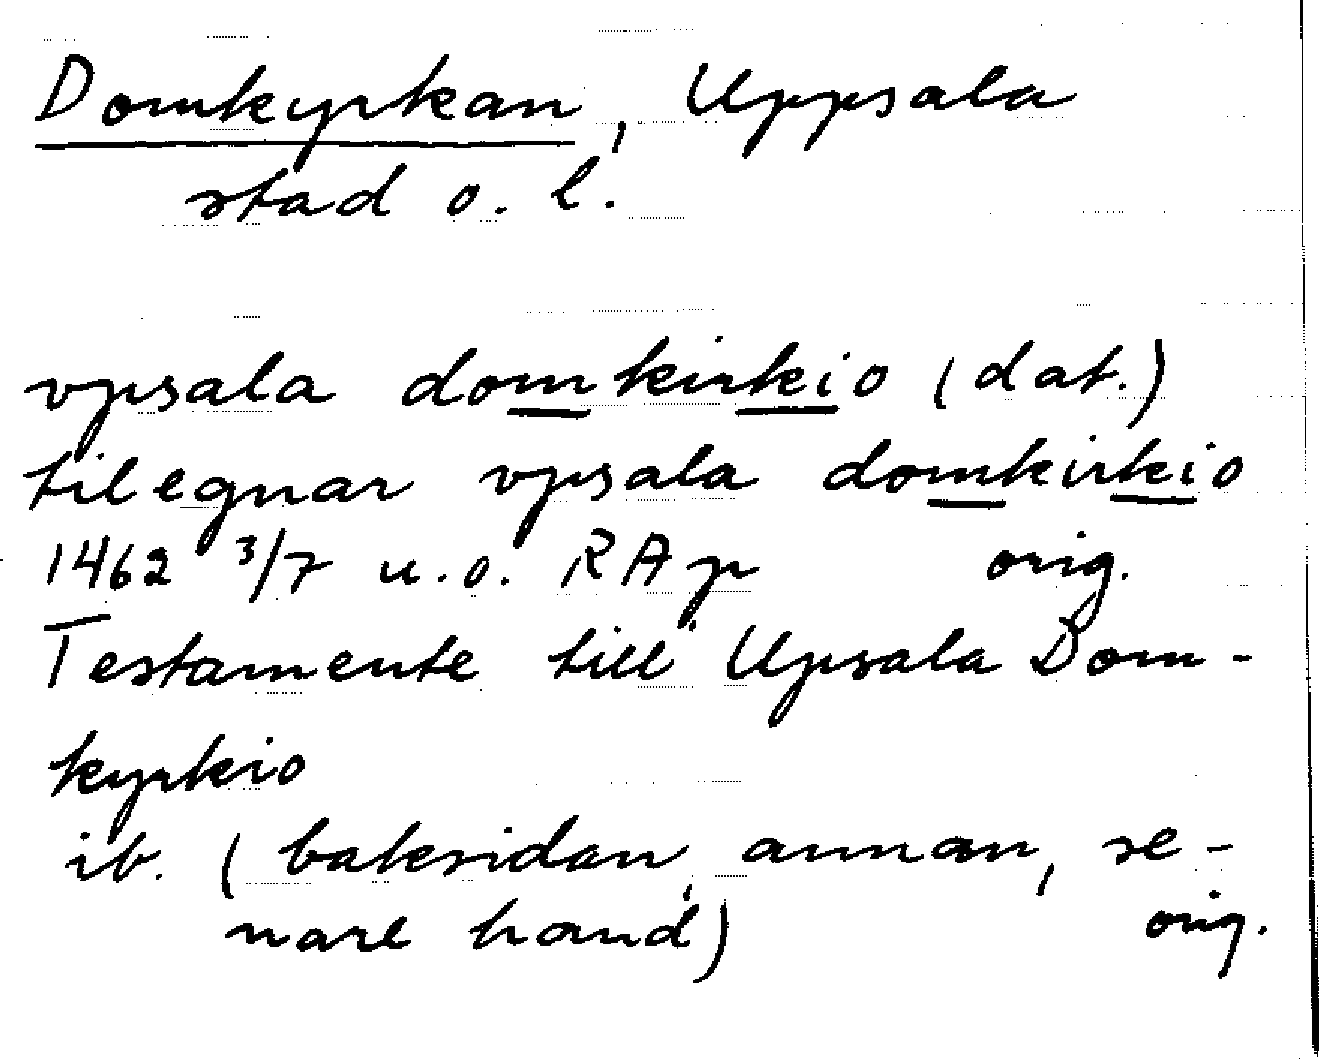 Domkyrkan, Uppsala
stad o. l.
vpsala domkirkio (dat.)
tilegnar vpsala domkirkio
1462 3/7 u.o. RAp orig.
Testamente till Upsala Dom-
kyrkio
ib. (baksidan, annan, se-
nare hand) orig.